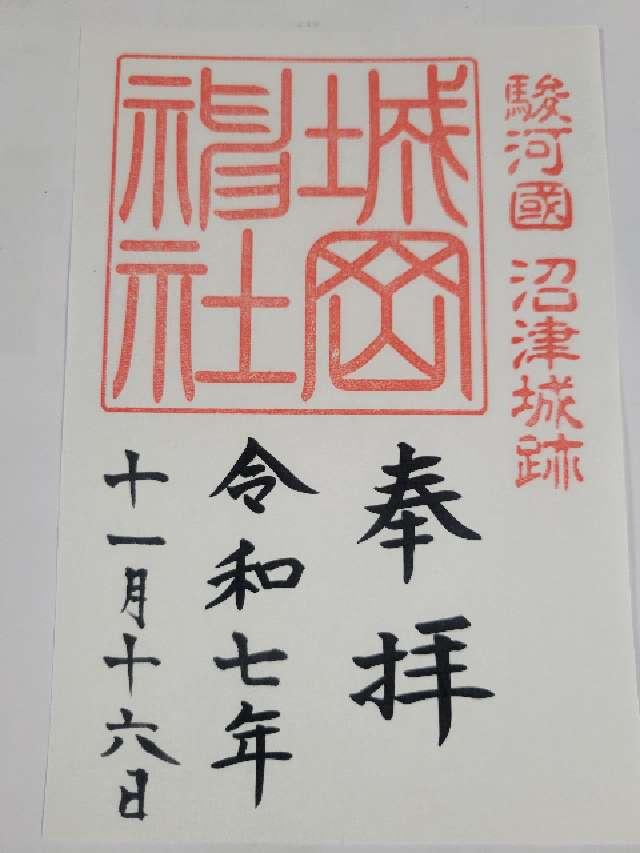 駿河國 沼津城跡
城岡
神社
奉拝
令和七年
十一月十六日